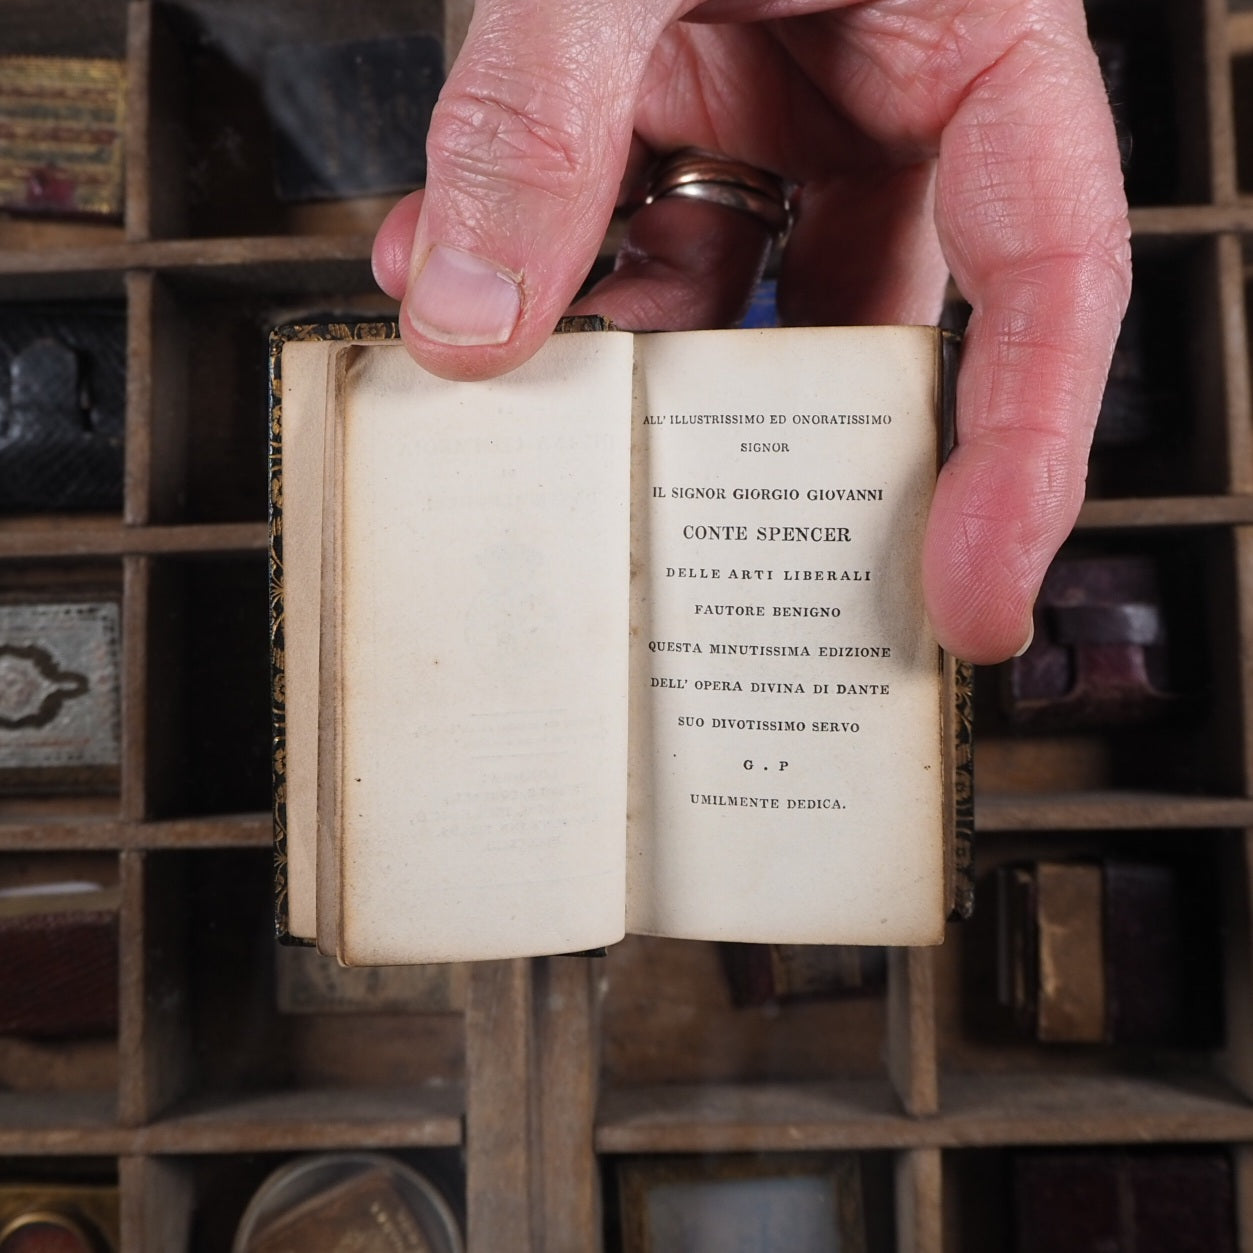 ALL' ILLUSTRISSIMO ED ONORATISSIMO
SIGNOR
IL SIGNOR GIORGIO GIOVANNI
CONTE SPENCER
DELLE ARTI LIBERALI
FAUTORE BENIGNO
QUESTA MINUTISSIMA EDIZIONE
DELL' OPERA DIVINA DI DANTE
SUO DIVOTISSIMO SERVO
G . P
UMILMENTE DEDICA.